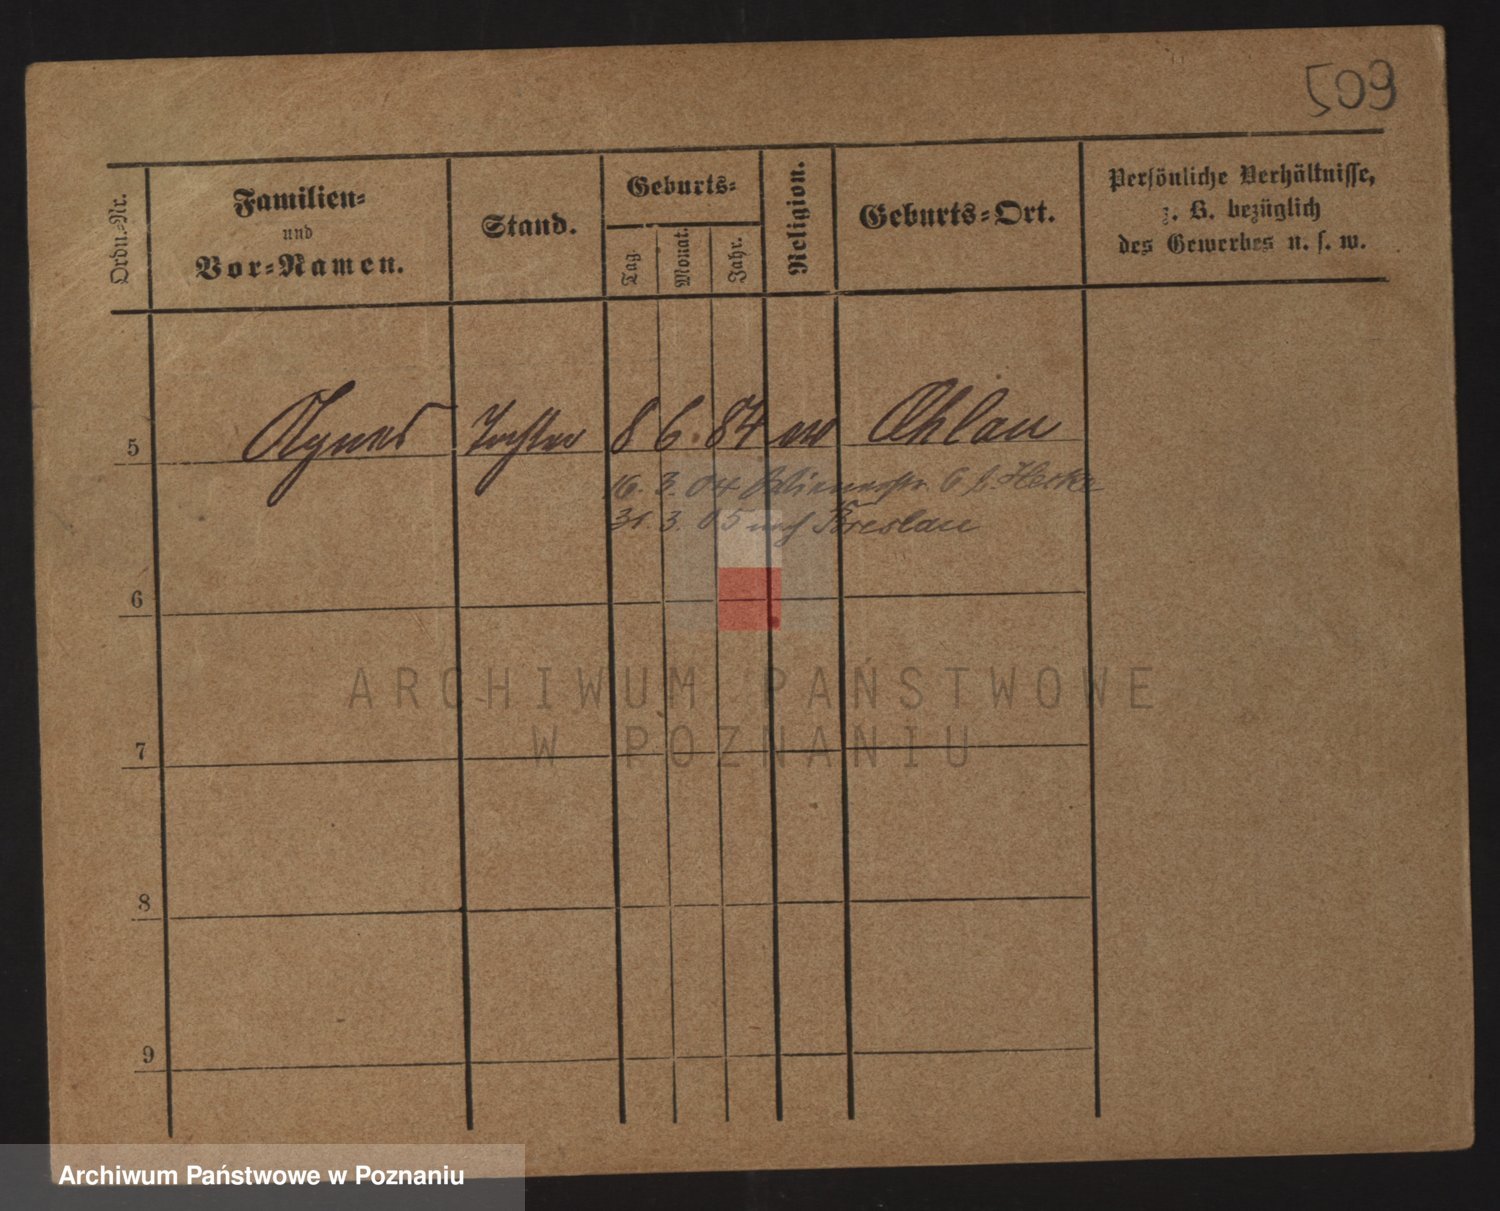 503
Ordn.-Nr.
Familien-
und
Vor-Namen.
Stand.
Geburts-
Tag.
Monat.
Jahr.
Religion.
Geburts-Ort.
Persönliche Verhältnisse,
z. B. bezüglich
des Gewerbes u. s. w.
5 Agnes Tochter 8 6. 84 Ohlau
16. 3. 04
31. 3. 05 nach Breslau
6
7
8
9
ARCHIWUM PAŃSTWOWE
W POZNANIU
Archiwum Państwowe w Poznaniu